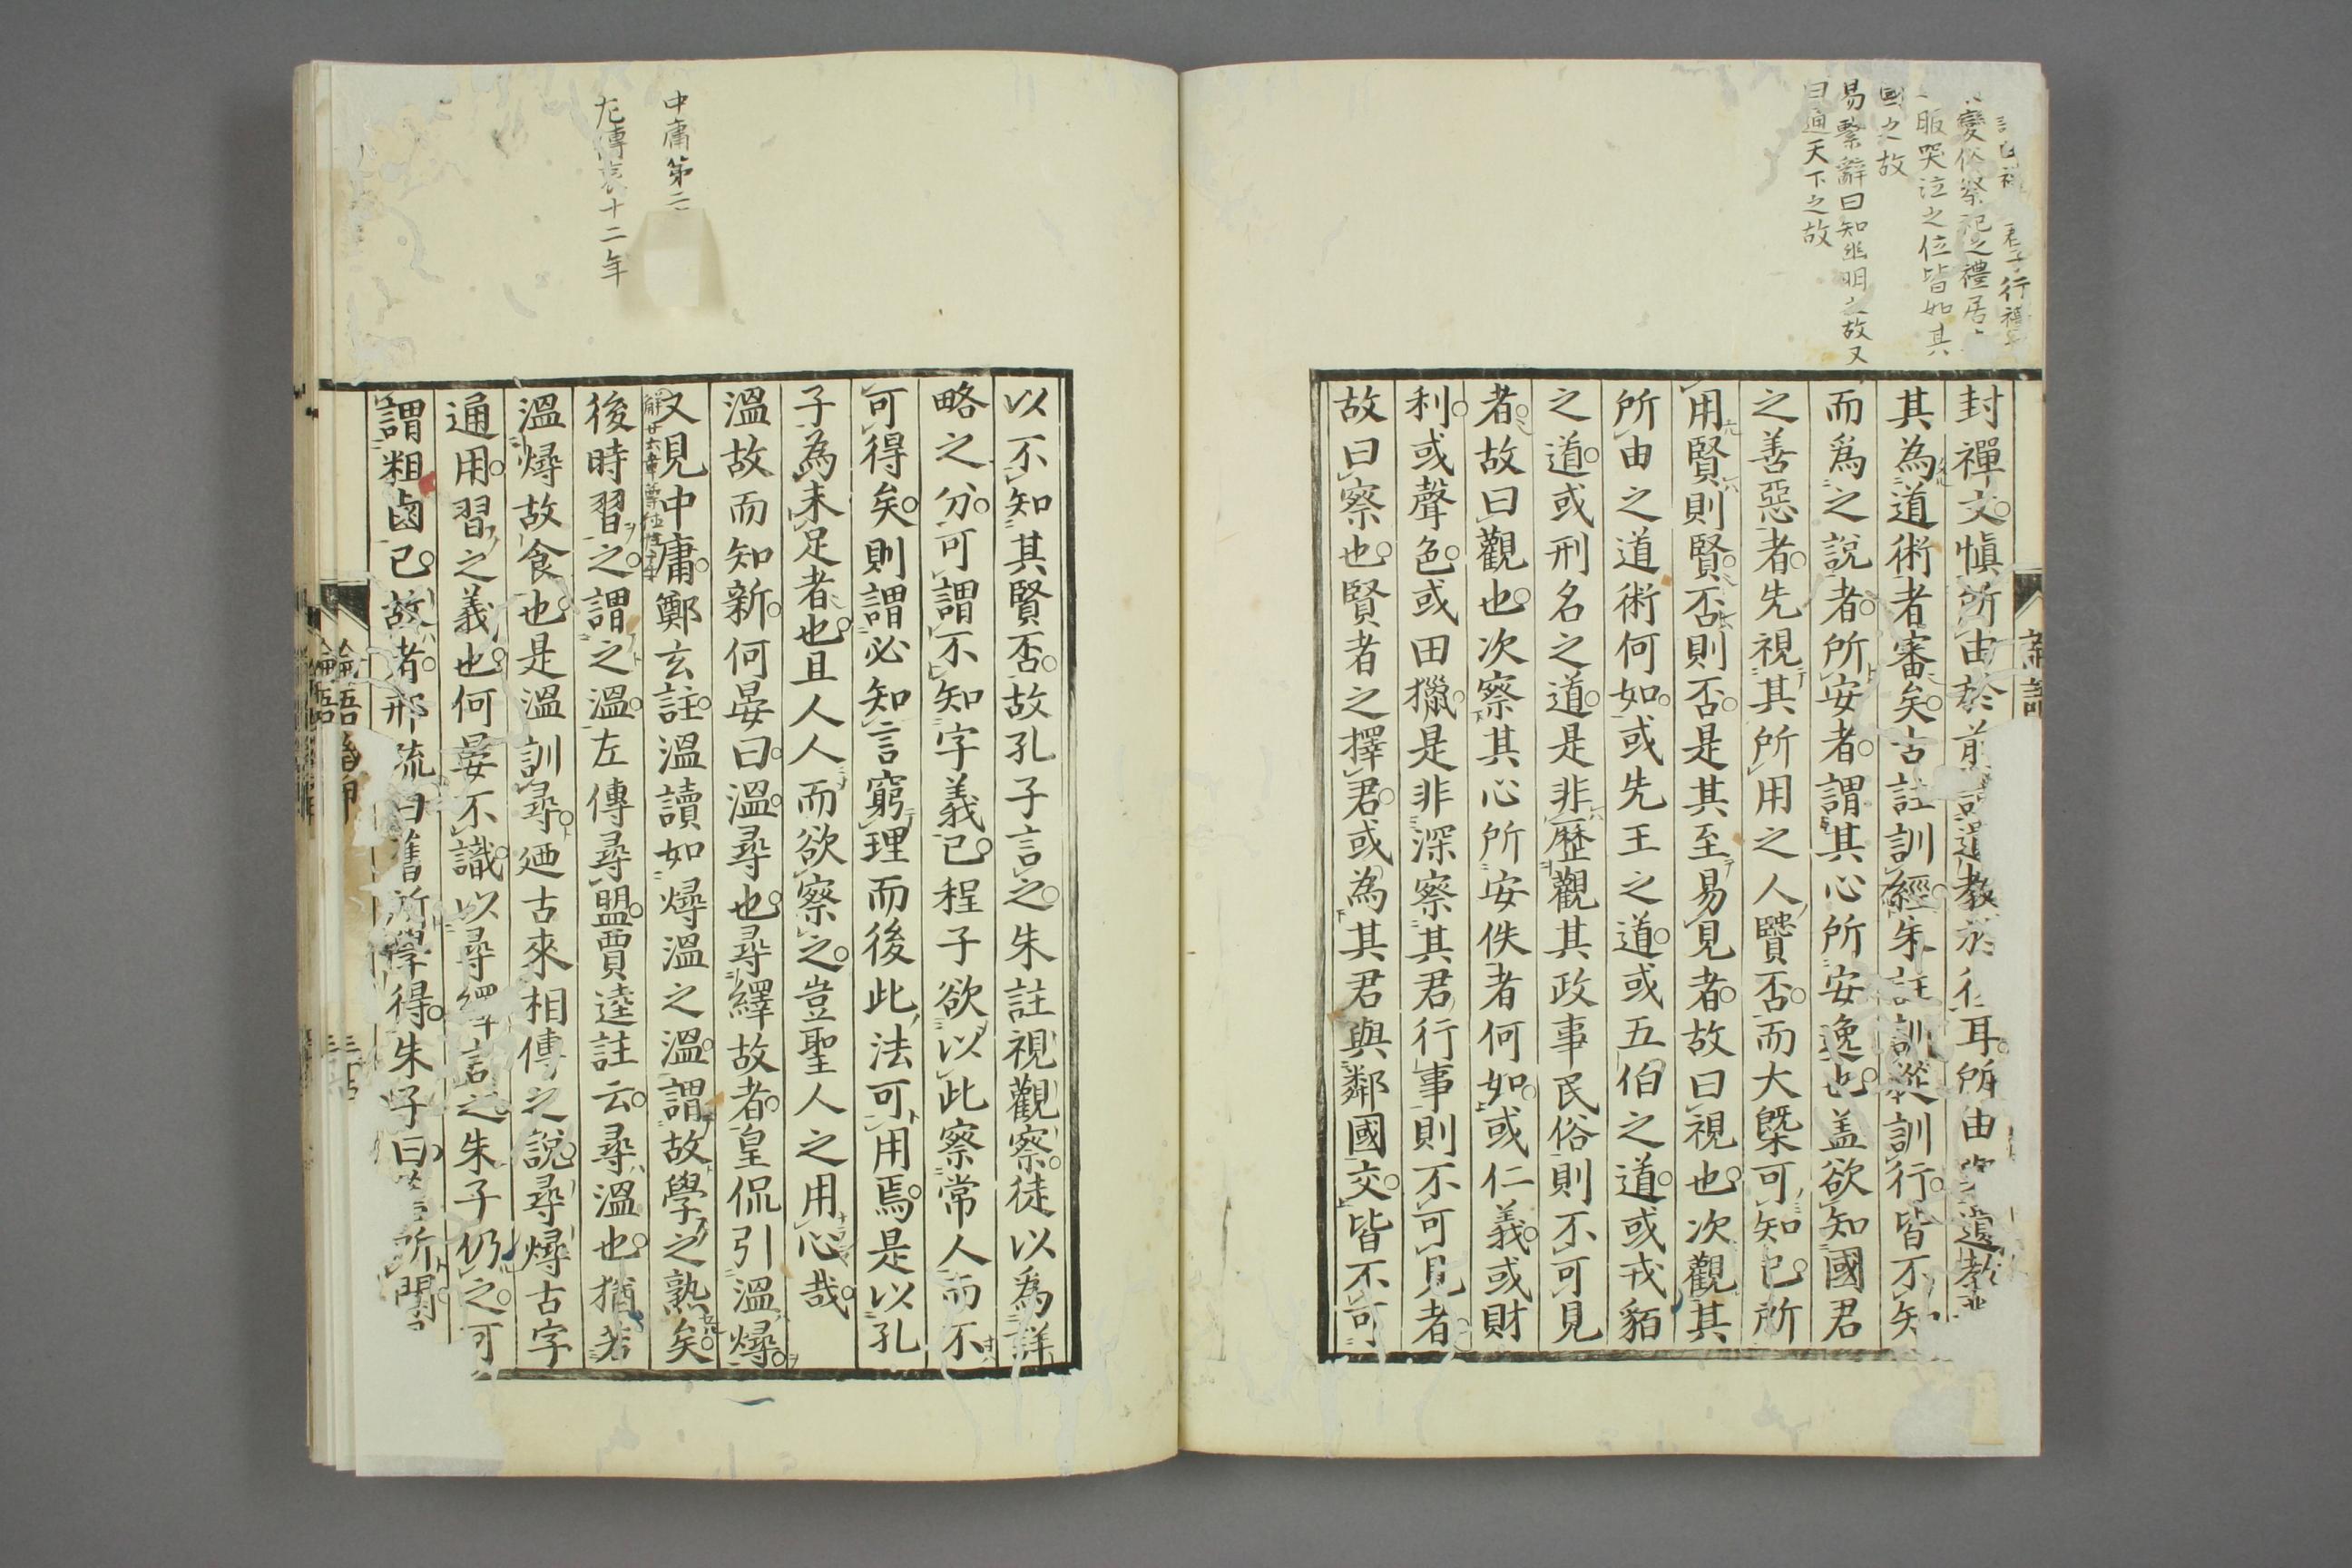 變俗祭祀之禮居
服哭泣之位皆如其
國之故
易繫辭曰知幽明之故又
曰通天下之故
封禪文愼所由於前遺教於後耳所由
其為道術者審矣古註訓經朱註訓從訓行皆不知
而爲之說者所安者謂其心所安逸也盖欲知國君
之善惡者先視其所用之人賢否而大槩可知已所
用賢則賢否則否是其至易見者故曰視也次觀其
所由之道術何如或先王之道或五伯之道或戎貊
之道或刑名之道是非歷觀其政事民俗則不可見
者故曰觀也次察其心所安佚者何如或仁義或財
利或聲色或田獵是非深察其君行事則不可見者
故曰察也賢者之擇君或為其君與鄰國交皆不可
以不知其賢否故孔子言之朱註視觀察徒以爲詳
略之分可謂不知字義已程子欲以此察常人而不
可得矣則謂必知言窮理而後此法可用焉是以孔
子為未足者也且人人而欲察之豈聖人之用心哉
溫故而知新何晏曰溫尋也尋繹故者皇侃引溫燖
又見中庸鄭玄註溫讀如燖溫之溫謂故學之熟矣
後時習之謂之溫左傳尋盟賈逵註云尋溫也猶若
溫燖故食也是溫訓尋迺古來相傳之說尋燖古字
通用習之義也何晏不識以尋繹言之朱子仍之可
謂粗鹵已故者邢疏曰舊所學得朱子曰所聞
中庸第二
左傳哀十二年
論語